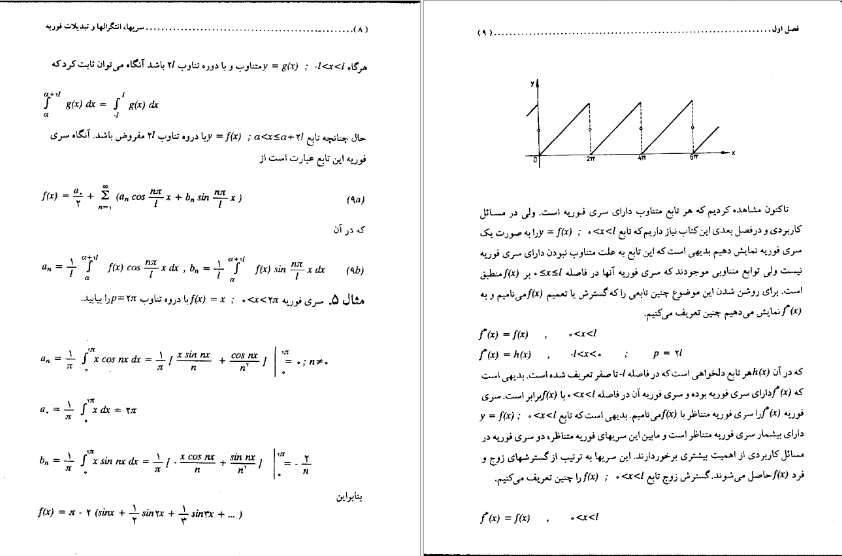 (۸) ........ سریها، انتگرالها و تبدیلات فوریه
هرگاه y = g(x) ; -l<x<l متناوب و با دوره تناوب ۲l باشد آنگاه می‌توان ثابت کرد که
∫_α^{α+۲l} g(x) dx = ∫_{-l}^{l} g(x) dx
حال چنانچه تابع y = f(x) ; α<x≤α+۲l با دروه تناوب ۲l مفروض باشد. آنگاه سری
فوریه این تابع عبارت است از
f(x) = a₀/۲ + Σ_{n=۱}^{∞} (aₙ cos nπ/l x + bₙ sin nπ/l x) (۹a)
که در آن
aₙ = ۱/l ∫_α^{α+۲l} f(x) cos nπ/l x dx , bₙ = ۱/l ∫_α^{α+۲l} f(x) sin nπ/l x dx (۹b)
مثال ۵. سری فوریه f(x) = x ; ۰<x<۲π با دروه تناوب p=۲π را بیابید.
aₙ = ۱/π ∫_۰^{۲π} x cos nx dx = ۱/π [ x sin nx/n + cos nx/n² ] |_۰^{۲π} = ۰ ; n≠۰
a₀ = ۱/π ∫_۰^{۲π} x dx = ۲π
bₙ = ۱/π ∫_۰^{۲π} x sin nx dx = ۱/π [ - x cos nx/n + sin nx/n² ] |_۰^{۲π} = - ۲/n
بنابراین
f(x) = π - ۲ (sinx + ۱/۲ sin۲x + ۱/۳ sin۳x + ... )
فصل اول ........ (۹)
y
0 2π 4π 6π x
تاکنون مشاهده کردیم که هر تابع متناوب دارای سری فوریه است. ولی در مسائل
کاربردی و درفصل بعدی این کتاب نیاز داریم که تابع y = f(x) ; ۰<x<l را به صورت یک
سری فوریه نمایش دهیم بدیهی است که این تابع به علت متناوب نبودن دارای سری فوریه
نیست ولی توابع متناوبی موجودند که سری فوریه آنها در فاصله ۰≤x≤l بر f(x) منطبق
است. برای روشن شدن این موضوع چنین تابعی را که گسترش یا تعمیم f(x) می‌نامیم و به
f*(x) نمایش می‌دهیم چنین تعریف می‌کنیم.
f*(x) = f(x) , ۰<x<l
f*(x) = h(x) , -l<x<۰ ; p = ۲l
که در آن h(x) هر تابع دلخواهی است که در فاصله l- تا صفر تعریف شده است. بدیهی است
که f*(x) دارای سری فوریه بوده و سری فوریه آن در فاصله ۰<x<l با f(x) برابر است. سری
فوریه f*(x) را سری فوریه متناظر با f(x) می‌نامیم. بدیهی است که تابع y = f(x) ; ۰<x<l
دارای بیشمار سری فوریه متناظر است و مابین این سریهای فوریه متناظر، دو سری فوریه در
مسائل کاربردی از اهمیت بیشتری برخوردارند. این سریها به ترتیب از گسترشهای زوج و
فرد f(x) حاصل می‌شوند. گسترش زوج تابع f(x) ; ۰<x<l را چنین تعریف می‌کنیم.
f*(x) = f(x) , ۰<x<l